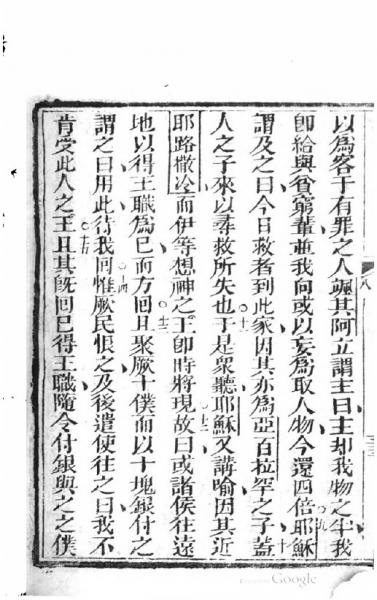 以為客于有罪之人颯其阿立謂主曰主却我物之半我
即給與貧窮輩並我向或以妄為取人物今還四倍耶穌
謂及之曰今日救者到此家因其亦為亞百拉罕之子蓋
人之子來以尋救所失也于是眾聽耶穌又講喻因其近
耶路撒冷而伊等想神之王即時將現故曰或諸侯往遠
地以得王職為已而方回且聚厥十僕而以十塊銀付之
謂之曰用此待我回惟厥民恨之及後遣使往之曰我不
肯受此人之王且其既回已得王職隨令付銀與之之僕
Google